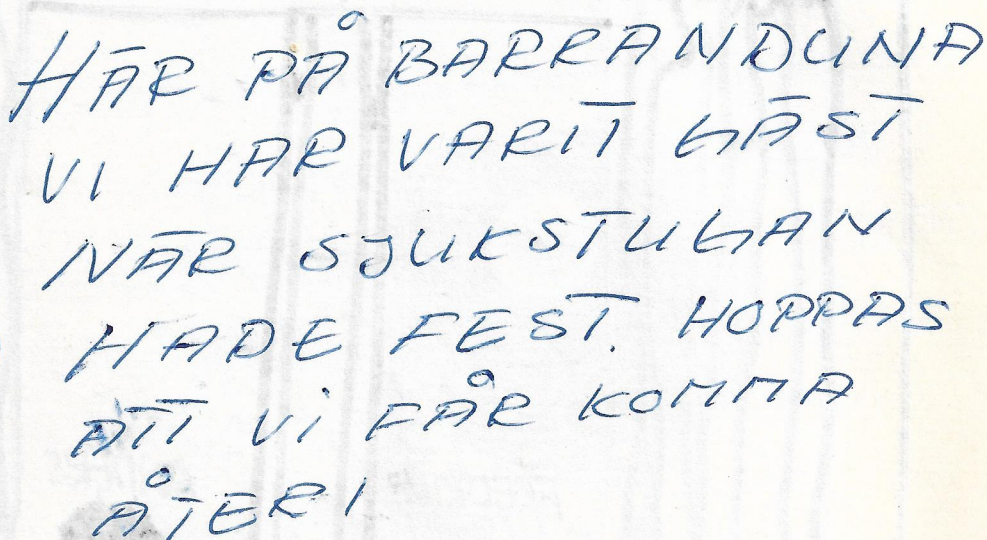 HÄR PÅ BARRANDUNA
VI HAR VARIT GÄST
NÄR SJUKSTUGAN
HADE FEST. HOPPAS
ATT Vi FÅR KOMMA
ÅTER!